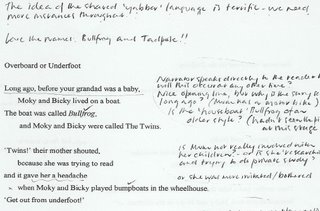 The idea of the shared 'yabber' language is terrific – we need
more instances throughout!
Love the names Bullfrog and Tadpole!!
Overboard or Underfoot
Long ago, before your grandad was a baby,
Moky and Bicky lived on a boat.
The boat was called Bullfrog,
and Moky and Bicky were called The Twins.
Narrator speaks directly to the reader
will this occur any other time?
Nice opening line, but why is the story so
long ago? (Mum has a motor bike)
Is the 'houseboat' Bullfrog of an
older style? (hadn't
at this stage
'Twins!' their mother shouted,
because she was trying to read
and it gave her a headache
when Moky and Bicky played bumpboats in the wheelhouse.
'Get out from underfoot!'
is Mum not really involved with
her children – or is she
and trying to do private study?
or she was irritated / bothered